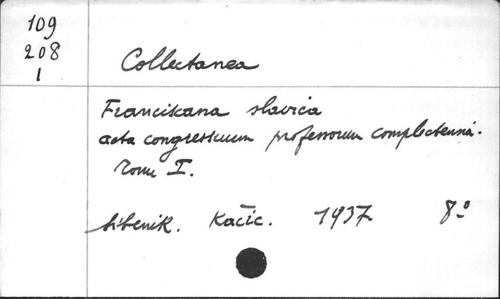 109
208
1
Collectanea
Franciscana slavica
acta congressuum professorum complectentia.
Tomu I.
Šibenik. Kačić. 1937. 8°